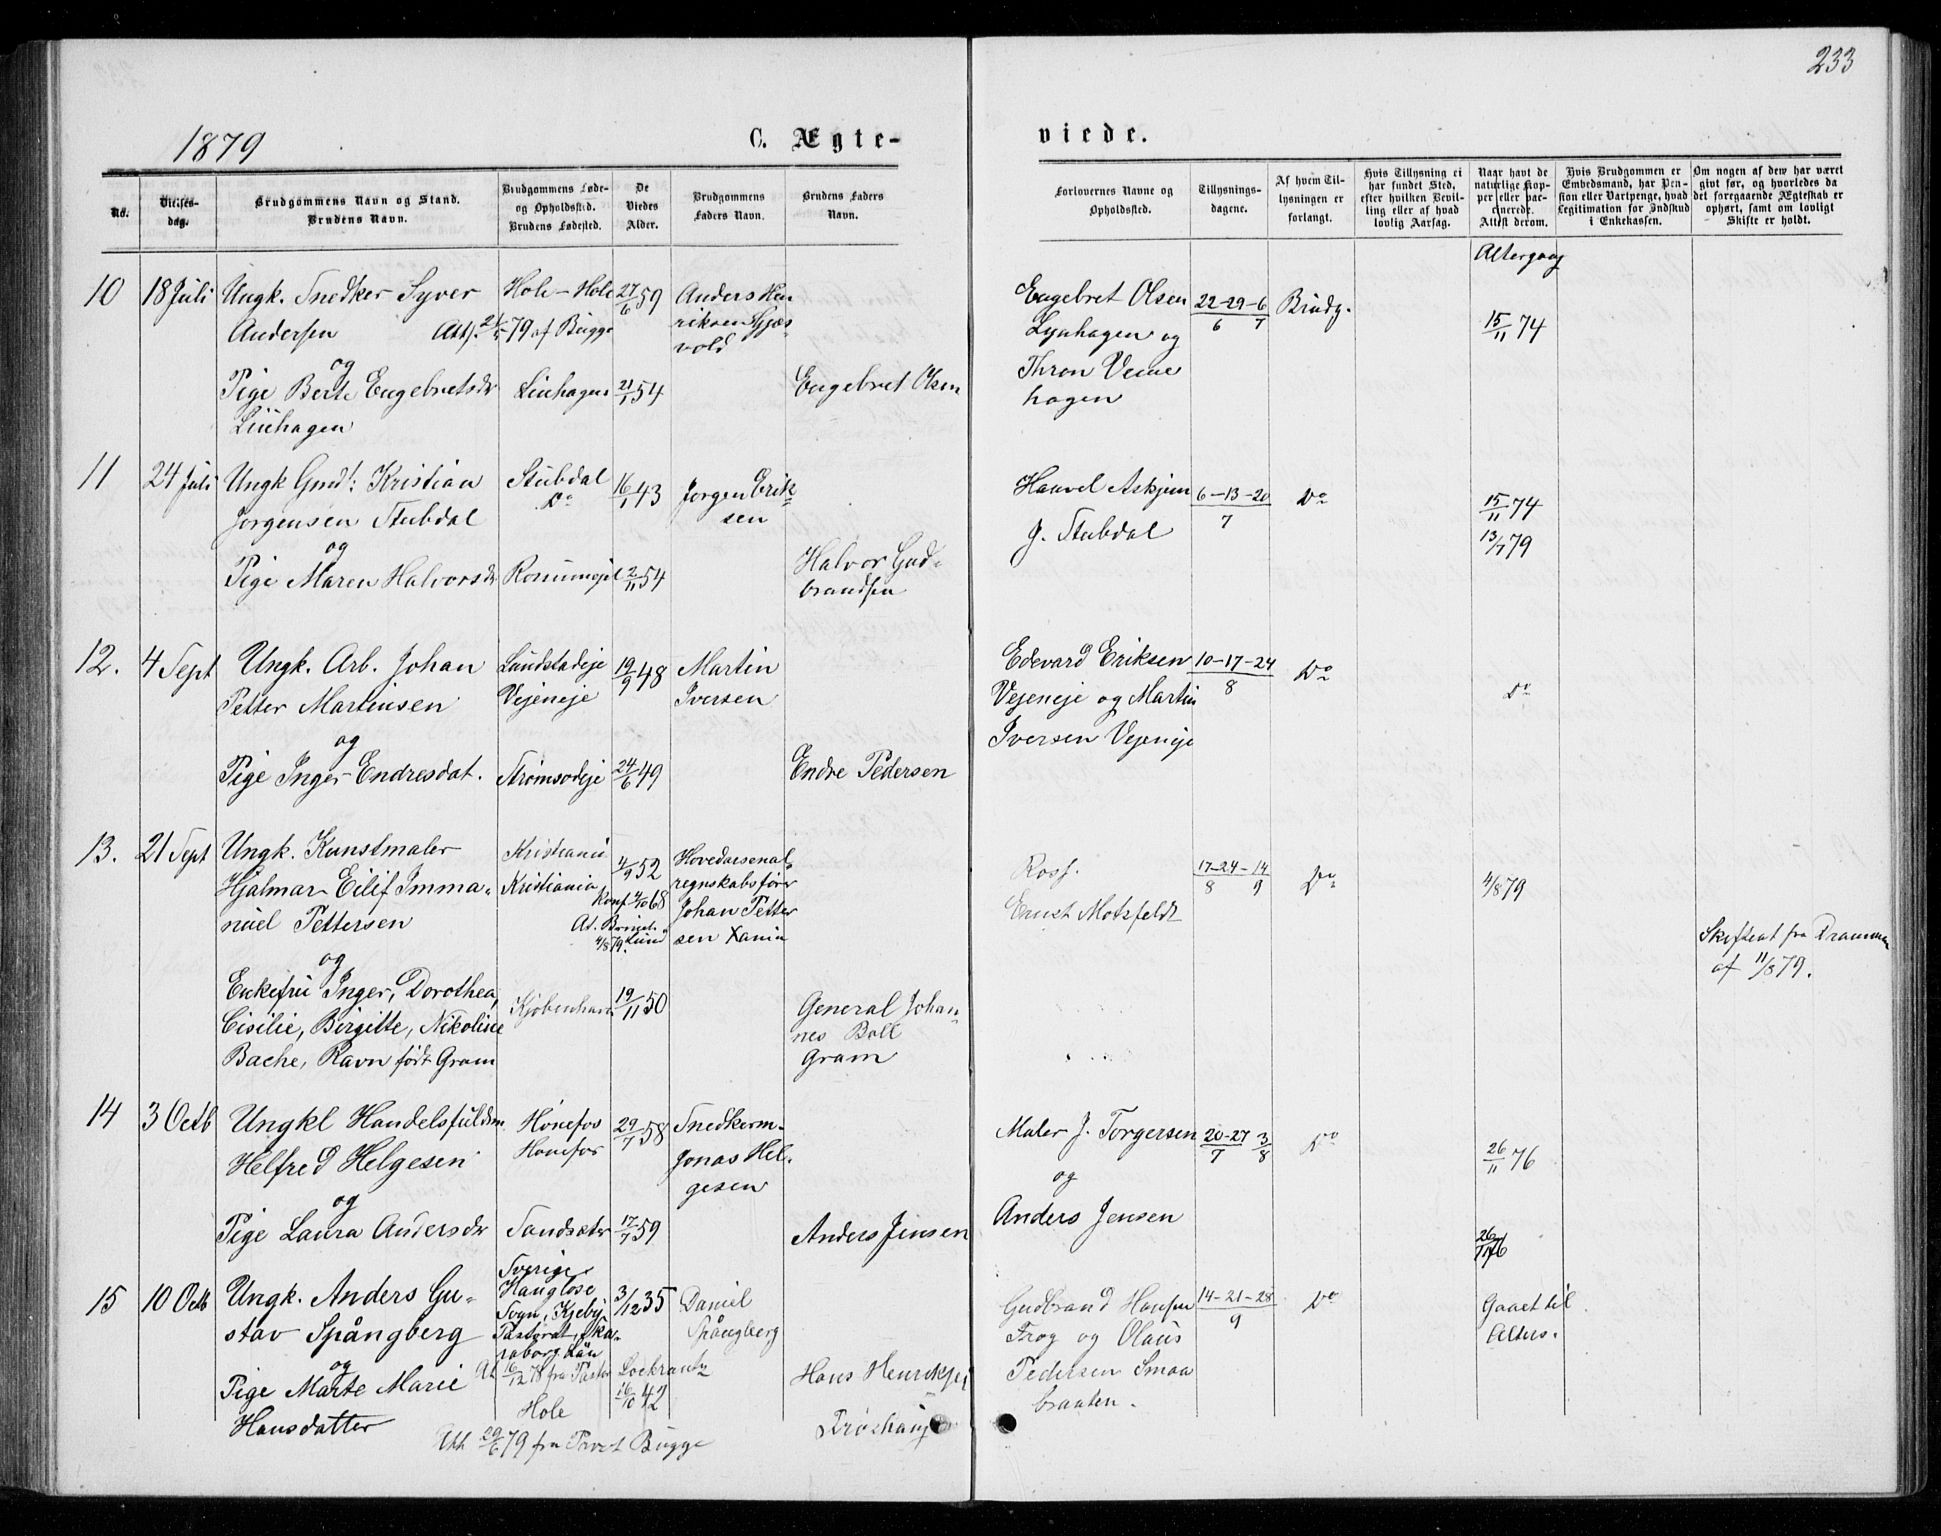 233
1879
C. Ægte-
viede.
No.
Vielses-
dag.
Brudgommens Navn og Stand.
Brudens Navn.
Brudgommens Føde-
og Opholdssted.
Brudens Fødested.
De
Viedes
Alder.
Brudgommens
Faders Navn.
Brudens Faders
Navn.
Forlovernes Navne og
Opholdssted.
Tillysnings-
dagene.
Af hvem Til-
lysningen er
forlangt.
Hvis Tillysning ei
har fundet Sted,
efter hvilken Bevil-
ling eller af hvad
lovlig Aarsag.
Naar havt de
naturlige Kop-
per eller vac-
cinerede.
Attest derom.
Hvis Brudgommen er
Embedsmand, har Pen-
sion eller Vartpenge, hvad
Legitimation for Indskud
i Enkekassen.
Om nogen af dem har været
gift før, og hvorledes da
det foregaaende Ægteskab er
ophørt, samt om lovligt
Skifte er holdt.
Altergang
10 18 Juli Ungk. Snedker Syver
Andersen
Att. 79 af Bugge
Hole - Hole
27/6 59
Anders Hen
riksen Gjæs
vold
og
Pige Berte Engebretsdr
Linhagen
Linhagen
21/1 54
Engebret Olsen
Engebret Olsen
Lynhagen og
Thron Veme
hagen
22-29-6
6 7
Brudg.
15/11 74
11 24 Juli Ungk Gmd: Kristian
Jorgensen Stubdal
Stubdal
Do
16/1 43
Jorgen Erik
sen
og
Pige Maren Halvorsdr
2/11 54
Halvor Gud-
brandsen
Hauvel Askjem
J. Stubdal
6-13-20
7
Do
15/11 74
13/7 79
12. 4 Sept Ungk. Arb. Johan
Petter Martinsen
Lundstadeje
Vejeneje
19/9 48
Martin
Iversen
og
Pige Inger Endresdat.
Strømsodeje
24/6 49
Endre Pedersen
Edevard Eriksen
Vejeneje og Martin
Iversen Vejeneje
10-17-24
8
Do
Do
13. 21 Sept Ungk. Kunstmaler
Hjalmar Eilif Imma-
nuel Pettersen
Kristiania
Kristiania
4/9 52
Konf. 68
At.
4/8 79. Lund
Hovedarsenal
regnskabsfører
Johan Petter
sen Xania
og
Enkefru Inger, Dorothea,
Cisilie, Birgitte, Nikoline
Bache, Ravn født Gram
Kjøbenhavn
19/11 50
General Johan-
nes Boll
Gram
Rosf.
Ernst Motzfeldt
17-24-14
8 9
Do
4/8 79
Skifteat fra Drammen
af 11/8 79.
14 3 Octb Ungkl Handelsfuldm
Helfred Helgesen
Hønefos
Hønefos
29/7 58
Snedkerm-
Jonas Hel-
gesen
og
Pige Laura Andersdr
Sandsater
17/7 59
Anders Jensen
Maler J. Torgersen
og
Anders Jensen
20-27 3
7 8
Do
26/11 76
26/11 76
15 10 Octb Ungk. Anders Gu-
stav Spångberg
Sverige
Hangløse
Sogn, Kjeby
Pastorat, Ska-
raborg Län
At 16/12 78 fra Pastor Lockrantz
3/12 35
Daniel
Spångberg
og
Pige Marte Marie
Hansdatter
Hole
16/10 42
Att 29/6 79 fra Provst Bugge
Hans Henriksen
Frøshaug
Gudbrand Hansen
Frog og Olaus
Pedersen Smaa
braaten.
14-21-28
9
Do
Gaaet til
Alters.